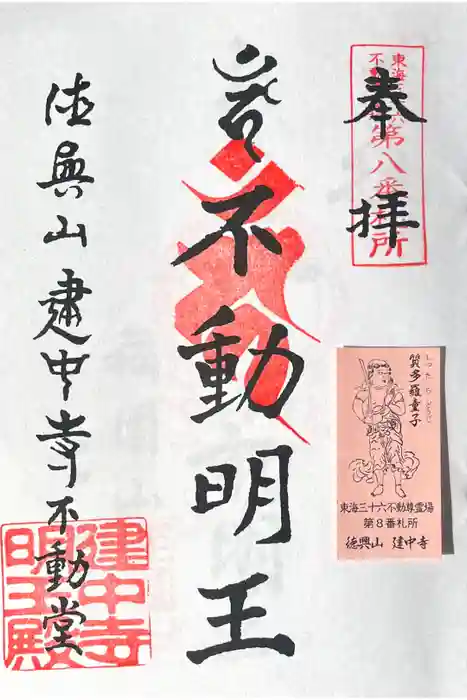 東海三十六
不動
第八番札所
奉拝
岩不動明王
徳興山建中寺不動堂
建中寺
明王殿
質多羅童子
しつたらどうじ
東海三十六不動尊霊場
第8番札所
徳興山 建中寺